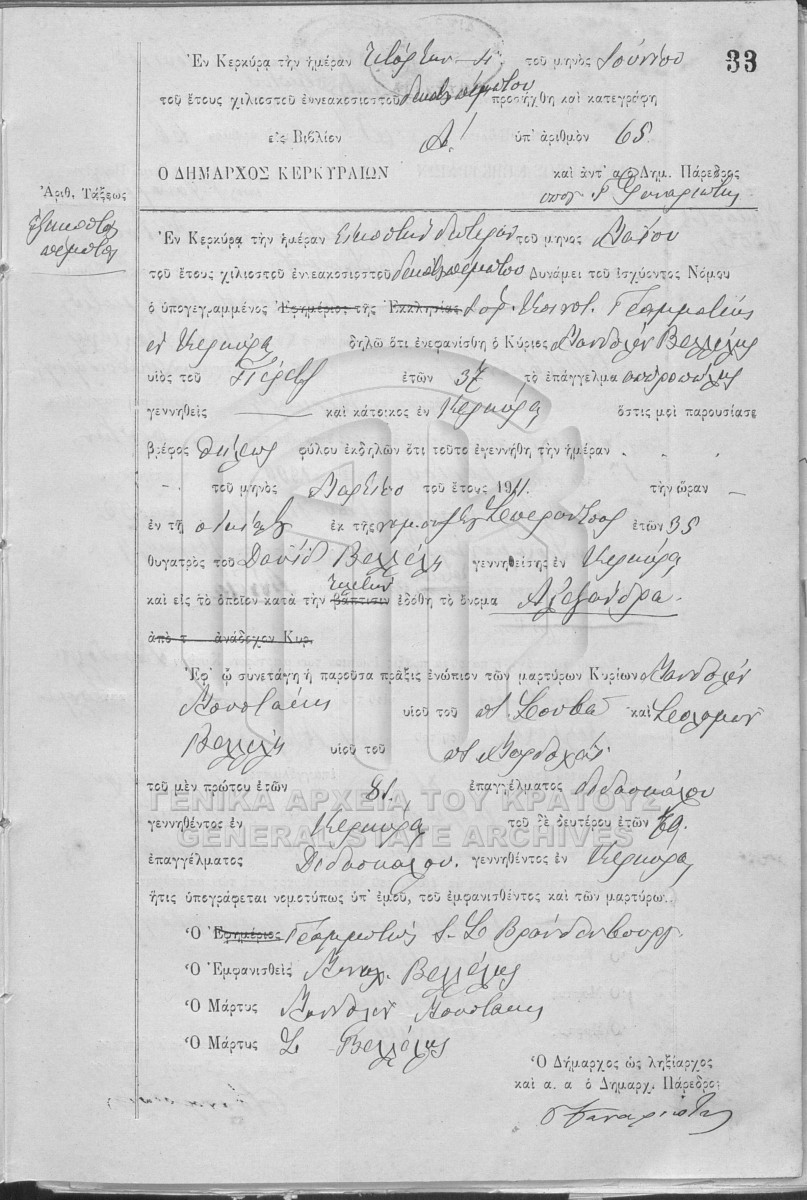 33
Ἐν Κερκύρᾳ τὴν ἡμέραν τετάρτην 4 τοῦ μηνὸς Ἰουνίου
τοῦ ἔτους χιλιοστοῦ ἐννεακοσιοστοῦ δεκάτου πέμπτου προσήχθη καὶ κατεγράφη
εἰς Βιβλίον Α! ὑπ' ἀριθμὸν 65
Ο ΔΗΜΑΡΧΟΣ ΚΕΡΚΥΡΑΙΩΝ καὶ ἀντ' α.ὁ Δημ. Πάρεδρος
Ἀριθ. Τάξεως
ἑξηκοστὸς
πέμπτος
Ἐν Κερκύρᾳ τὴν ἡμέραν εἰκοστὴν δευτέραν τοῦ μηνος Μαΐου
τοῦ ἔτους χιλιοστοῦ ἐννεακοσιοστοῦ δεκάτου πέμπτου Δυνάμει τοῦ ἰσχύοντος Νόμου
ὁ ὑπογεγραμμένος Ἐφημέριος τῆς Ἐκκλησίας Γραμματεὺς
ἐν Κερκύρᾳ δηλῶ ὅτι ἐνεφανίσθη ὁ Κύριος Μανθλὴν Βελλέλης
υἱὸς τοῦ ἐτῶν 37 τὸ ἐπάγγελμα
γεννηθεὶς καὶ κάτοικος ἐν Κερκύρᾳ ὅστις μοὶ παρουσίασε
βρέφος θήλεος φύλου ἐκδηλῶν ὅτι τοῦτο ἐγεννήθη τὴν ἡμέραν
τοῦ μηνὸς Μαρτίου τοῦ ἔτους 1911. τὴν ὥραν
ἐν τῇ οἰκίᾳ ἐκ τῆς νομ. συζ. Σπεράντσας ἐτῶν 35
θυγατρὸς τοῦ Δαυὶδ Βελλέλη γεννηθείσης ἐν Κερκύρᾳ
καὶ εἰς τὸ ὁποῖον κατὰ τὴν βάπτισιν τελετὴν ἐδόθη τὸ ὄνομα Ἀλεξάνδρα
ἀπὸ τ ἀνάδοχον Κυρ.
Ἐφ' ᾧ συνετάγη ἡ παροῦσα πρᾶξις ἐνώπιον τῶν μαρτύρων Κυρίων Μανθλὴν
Μουστάκη υἱοῦ τοῦ καὶ Σολομὼν
Βελλέλη υἱοῦ τοῦ Μορδοχάι
τοῦ μὲν πρώτου ἐτῶν 81. ἐπαγγέλματος διδασκάλου
γεννηθέντος ἐν Κερκύρᾳ τοῦ δὲ δευτέρου ἐτῶν 69
ἐπαγγέλματος Διδασκάλου. γεννηθέντος ἐν Κερκύρᾳ
ἥτις ὑπογράφεται νομοτύπως ὑπ' ἐμοῦ, τοῦ ἐμφανισθέντος καὶ τῶν μαρτύρω..
Ὁ Ἐφημέριος Γραμματεὺς
Ὁ Ἐμφανισθεὶς Μανθ. Βελλέλης
Ὁ Μάρτυς Μανθλὴν Μουστάκης
Ὁ Μάρτυς Σ Βελλέλης
Ὁ Δήμαρχος ὡς ληξίαρχος
καὶ α. α ὁ Δημαρχ. Πάρεδρο;
ΓΕΝΙΚΑ ΑΡΧΕΙΑ ΤΟΥ ΚΡΑΤΟΥΣ
GENERAL STATE ARCHIVES